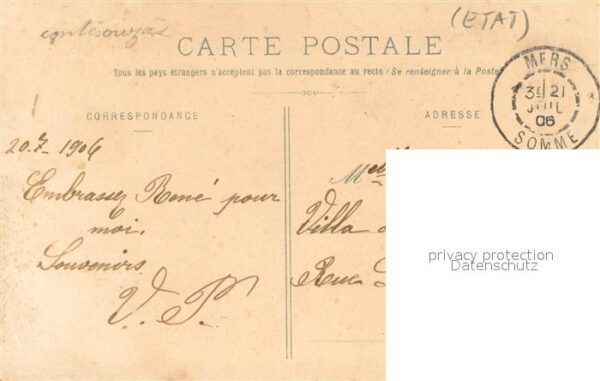 (ETAT)
CARTE POSTALE
Tous les pays étrangers n'acceptent pas la correspondance au recto (Se renseigner à la Poste
CORRESPONDANCE
ADRESSE
MERS
3E 21
JUIL
06
SOMME
20.7-1906
Embrassez René pour
moi.
Souvenirs
V. P.
Villa
Rue
privacy protection
Datenschutz